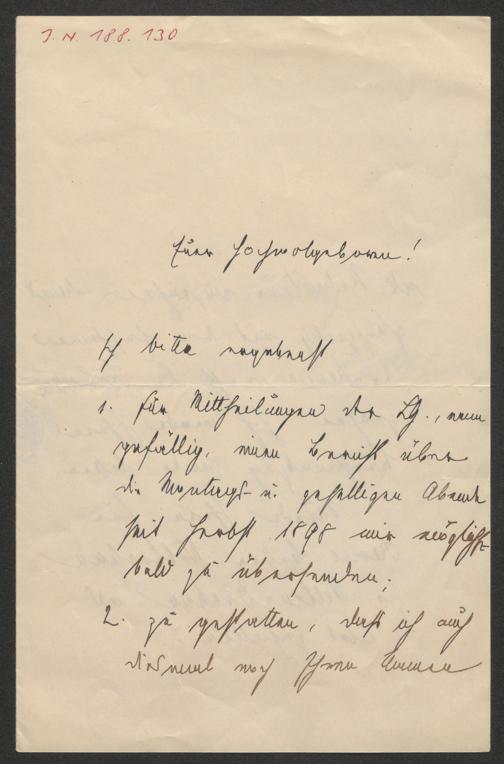 I. N. 188.130
Euer Hochwolgeboren!
Ich bitte ergebenst
1. für Mittheilungen der LG., wenn
gefällig, einen Bericht über
die Montags- u. geselligen Abende
seit Herbst 1898 mir möglichst
bald zu übersenden;
2. zu gestatten, daß ich auch
diesmal noch Ihren Namen